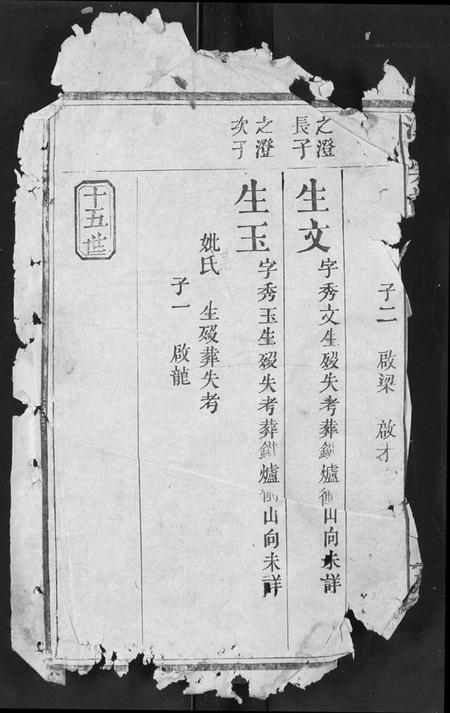 子二 啟梁 啟才
之澄
長子
生文 字秀文生歿失考葬鐵爐衝山向未詳
之澄
次子
生玉 字秀玉生歿失考葬鐵爐衝山向未詳
妣氏 生歿葬失考
子一 啟龍
十五世